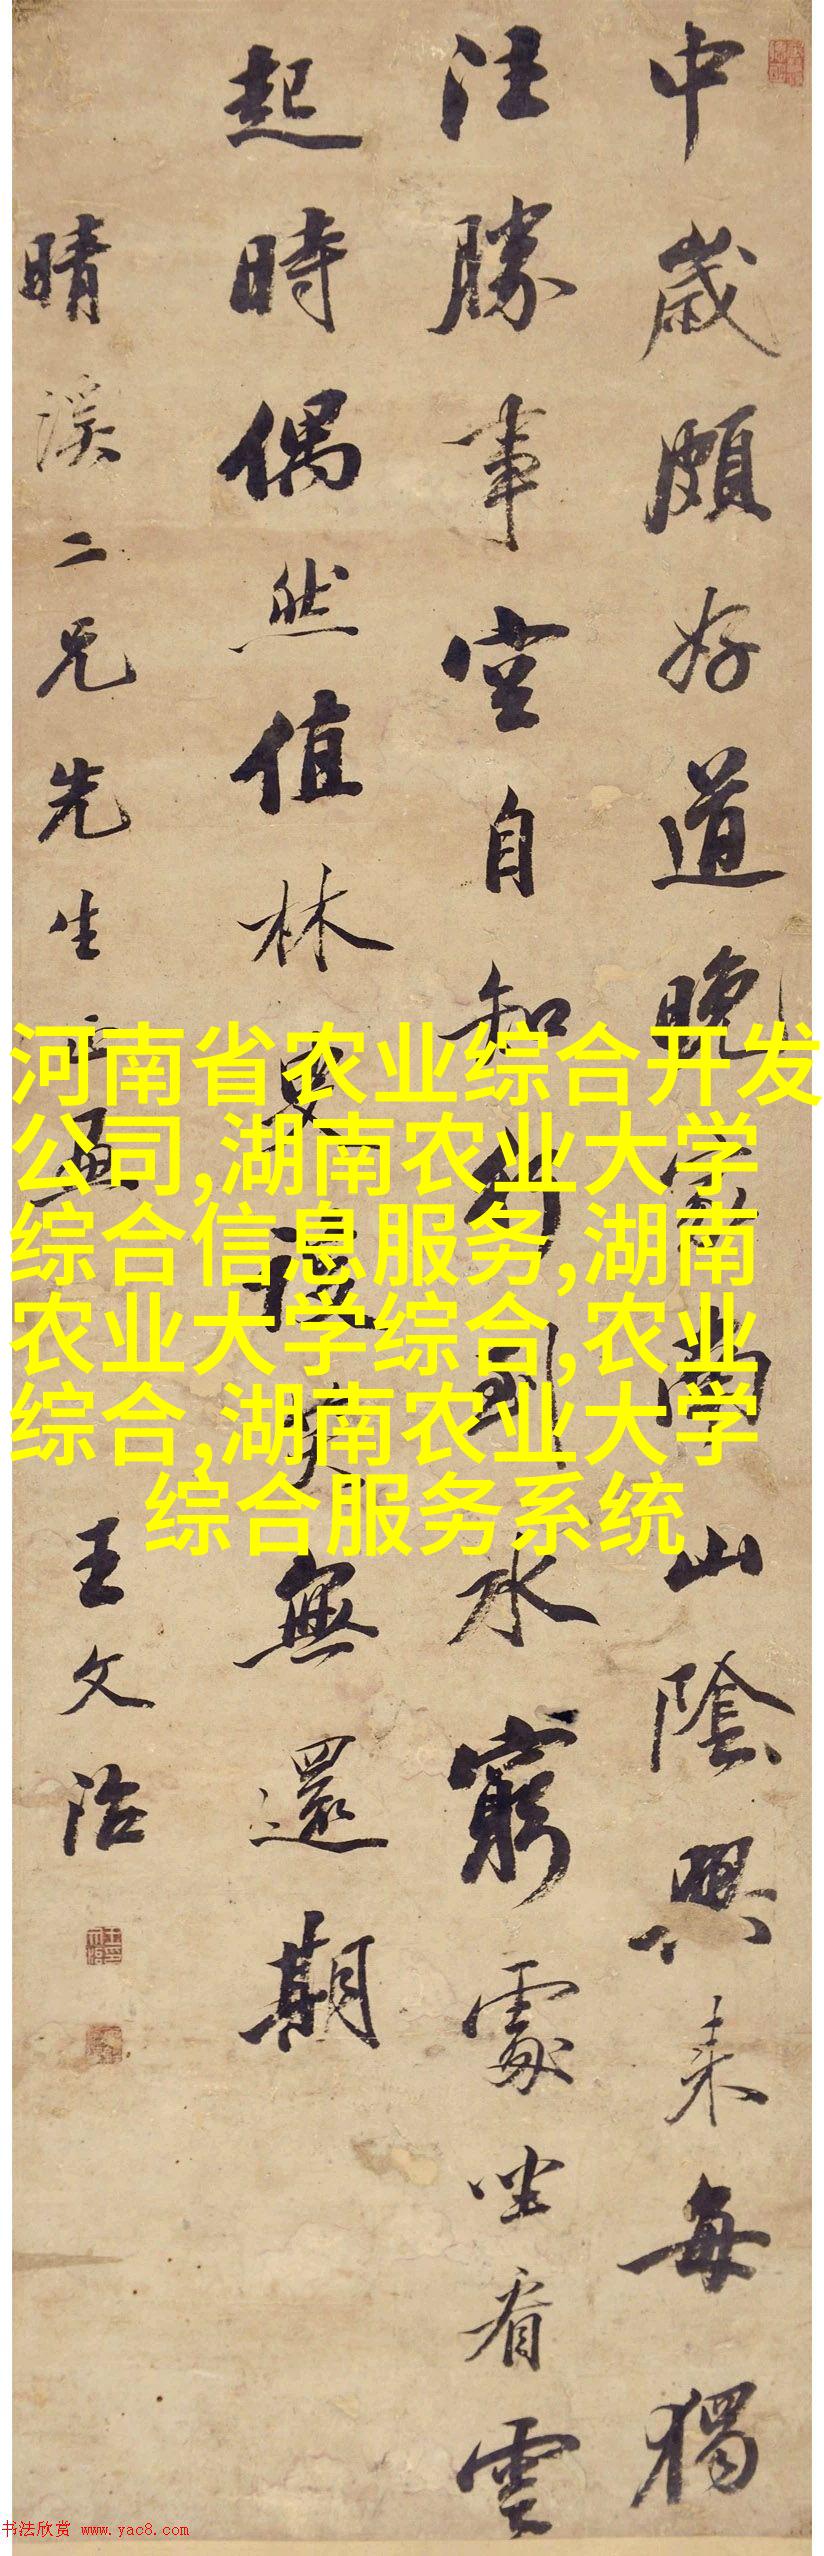 中歲頗好道晚家南山陰興来每獨
往勝事空自知行到水窮處坐看雲
起時偶然值林叟談笑無還期
晴溪二兄先生正
王文治
河南省农业综合开发
公司,湖南农业大学
综合信息服务,湖南
农业大学综合,农业
综合,湖南农业大学
综合服务系统
书法欣赏 www.yac8.com